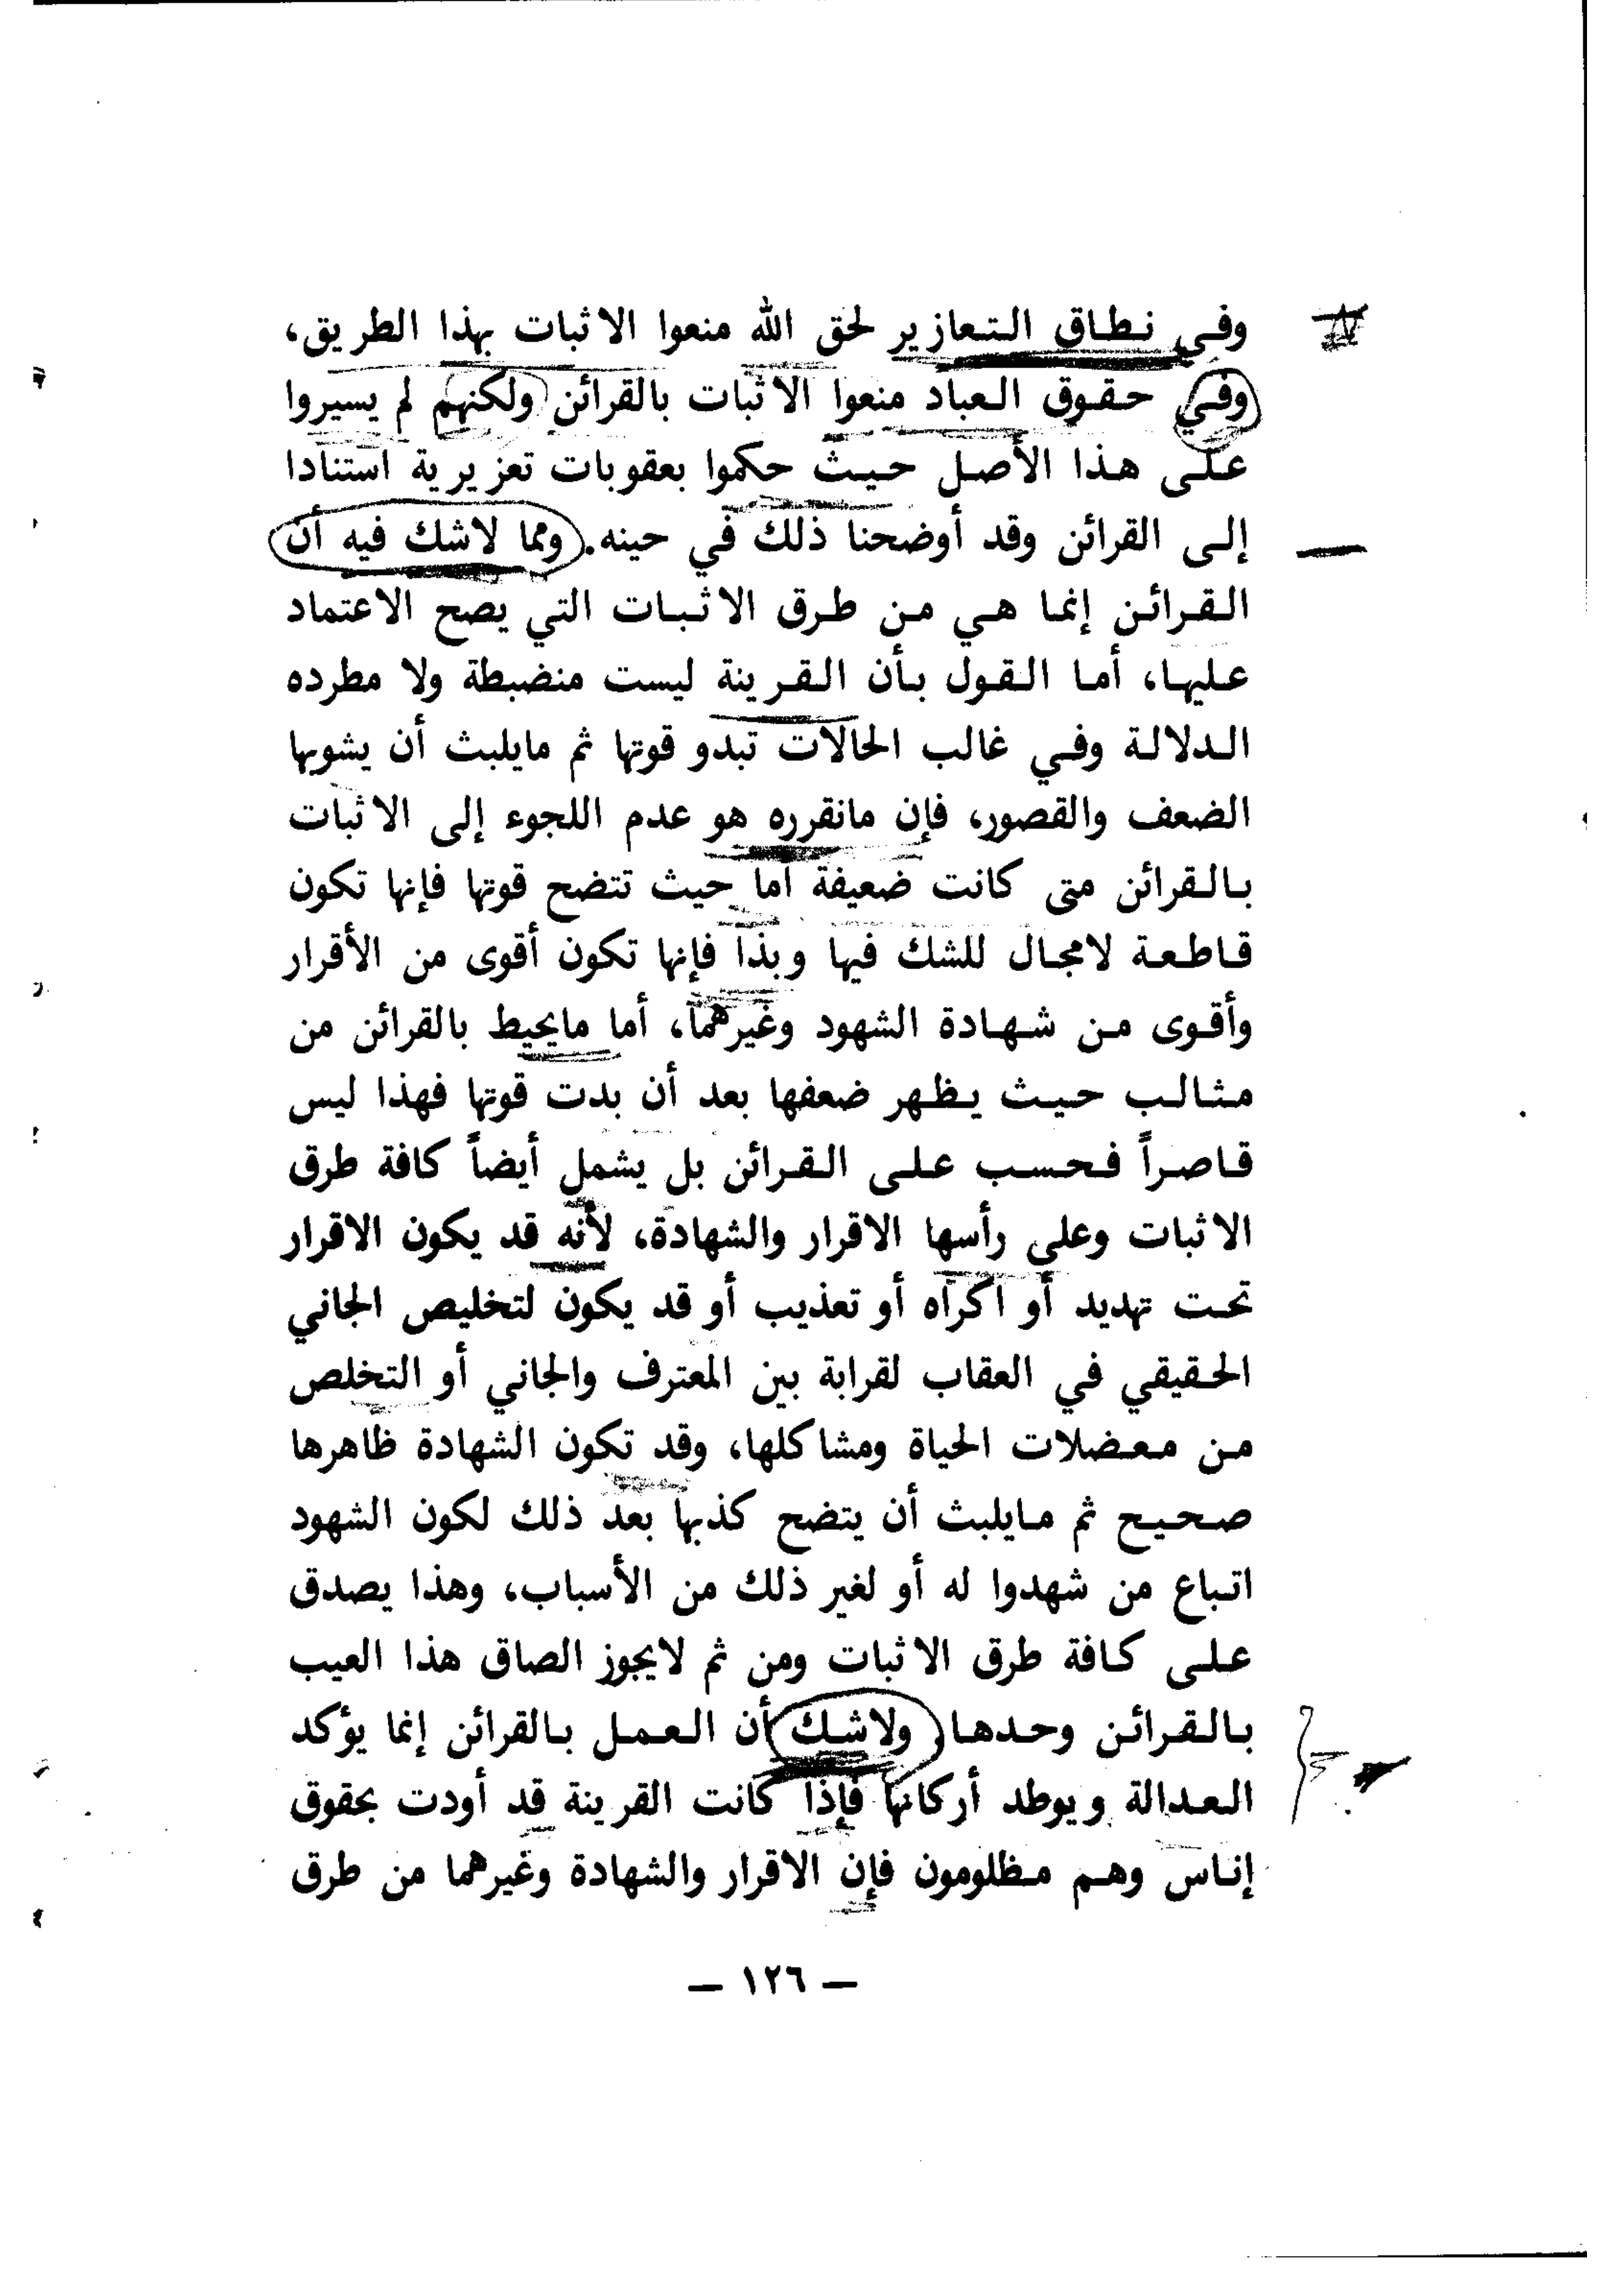 وفي نطاق التعازير لحق الله منعوا الاثبات بهذا الطريق،
وفي حقوق العباد منعوا الاثبات بالقرائن ولكنهم لم يسيروا
على هذا الأصل حيث حكموا بعقوبات تعزيرية استنادا
إلى القرائن وقد أوضحنا ذلك في حينه. ومما لاشك فيه أن
القرائن إنما هي من طرق الاثبات التي يصح الاعتماد
عليها، أما القول بأن القرينة ليست منضبطة ولا مطرده
الدلالة وفي غالب الحالات تبدو قوتها ثم مايلبث أن يشوبها
الضعف والقصور، فإن مانقرره هو عدم اللجوء إلى الاثبات
بالقرائن متى كانت ضعيفة أما حيث تتضح قوتها فإنها تكون
قاطعة لامجال للشك فيها وبذا فإنها تكون أقوى من الأقرار
وأقوى من شهادة الشهود وغيرهما، أما مايحيط بالقرائن من
مثالب حيث يظهر ضعفها بعد أن بدت قوتها فهذا ليس
قاصراً فحسب على القرائن بل يشمل أيضاً كافة طرق
الاثبات وعلى رأسها الاقرار والشهادة، لأنه قد يكون الاقرار
تحت تهديد أو اكراه أو تعذيب أو قد يكون لتخليص الجاني
الحقيقي في العقاب لقرابة بين المعترف والجاني أو التخلص
من معضلات الحياة ومشاكلها، وقد تكون الشهادة ظاهرها
صحيح ثم مايلبث أن يتضح كذبها بعد ذلك لكون الشهود
اتباع من شهدوا له أو لغير ذلك من الأسباب، وهذا يصدق
على كافة طرق الاثبات ومن ثم لايجوز الصاق هذا العيب
بالقرائن وحدها، ولاشك أن العمل بالقرائن إنما يؤكد
العدالة ويوطد أركانها فإذا كانت القرينة قد أودت بحقوق
إناس وهم مظلومون فإن الاقرار والشهادة وغيرهما من طرق
— ١٢٦ —